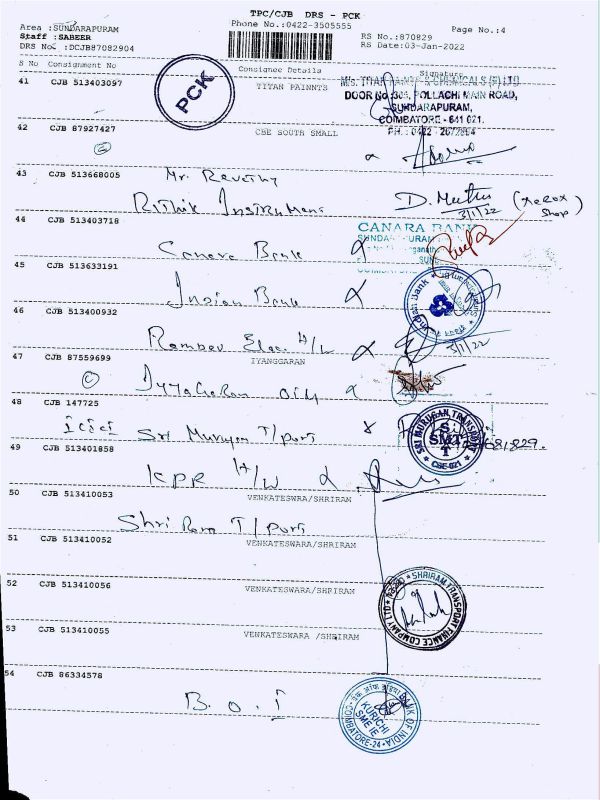 TPC/CJB DRS - PCK
Area :SUNDARAPURAM
Phone No.:0422-3505555
Page No.:4
Staff :SABEER
RS No.:870829
DRS No. :DCJB87082904
RS Date:03-Jan-2022
S No Consignment No Consignee Details Signature
41 CJB 513403097 TITAN PAINNTS
PCK
DOOR No. 304, POLLACHI MAIN ROAD,
SUNDARAPURAM,
COIMBATORE - 641 021.
PH. : 0422 - 2672864
42 CJB 87927427 CBE SOUTH SMALL
43 CJB 513668005 Mr. Revathy
D. Muthu (xerox shop)
3/1/22
Rithik Instrumens
44 CJB 513403718
CANARA BANK
Canara Bank
45 CJB 513633191
Indian Bank
Indian Bank
46 CJB 513400932
Ramdev Elec H/W
3/1/22
IYANGGARAN
47 CJB 87559699
Iyyagaran oily
48 CJB 147725
icici Sri Murugan T/port
SRI MURUGAN TRANSPORT
SMT
CBE-021
681829.
49 CJB 513401858
KPR H/W
50 CJB 513410053 VENKATESWRA/SHRIRAM
Shri Ram T/port
51 CJB 513410052 VENKATESWARA/SHRIRAM
52 CJB 513410056 VENKATESWARA/SHRIRAM
SHRIRAM TRANSPORT FINANCE COMPANY LTD
53 CJB 513410055 VENKATESWARA /SHRIRAM
54 CJB 86334578
B.O.I
BANK OF INDIA
KURICHI
SME IE
COIMBATORE-24